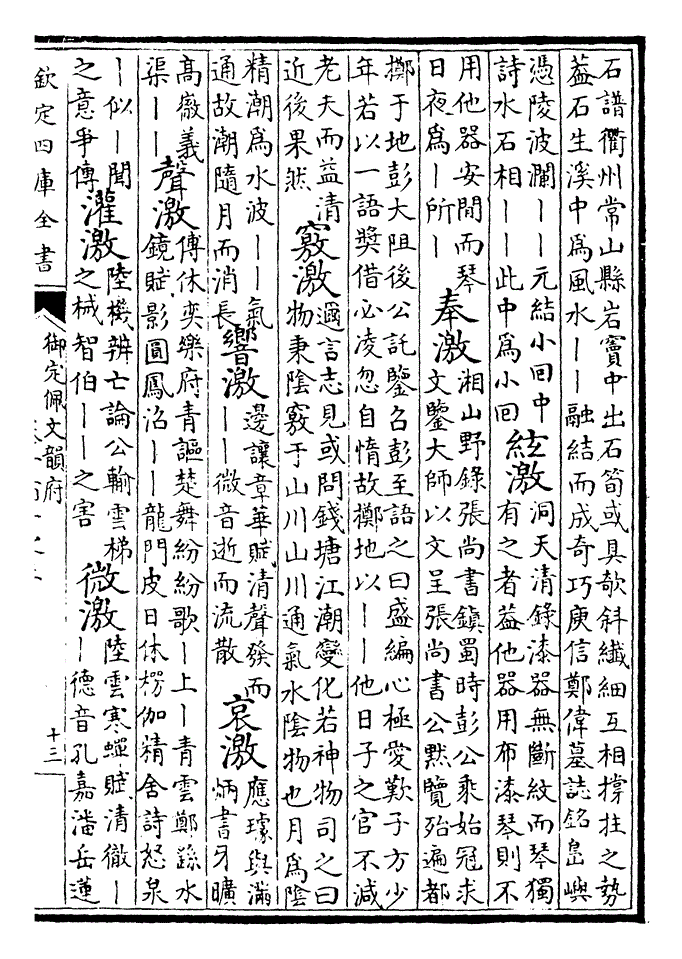 石譜衢州常山縣岩竇中出石筍或具欹斜纖細互相撐拄之勢
蓋石生溪中為風水——融結而成奇巧庾信鄭偉墓誌銘島嶼
憑陵波瀾——元結小回中
詩水石相——此中為小回
絃激
洞天清錄漆器無斷紋而琴獨
有之者蓋他器用布漆琴則不
用他器安閒而琴
日夜為—所—
奉激
湘山野錄張尚書鎮蜀時彭公乘始冠求
文鑒大師以文呈張尚書公默覽殆遍都
擲于地彭大阻後公託鑒召彭至語之曰盛編心極愛歎子方少
年若以一語奬借必凌忽自惰故擲地以——他日子之官不減
老夫而益清
近後果然
竅激
邇言志見或問錢塘江潮變化若神物司之曰
物秉陰竅于山川山川通氣水陰物也月為陰
精潮為水波——氣
通故潮隨月而消長
響激
邊讓章華賦清聲發而
——微音逝而流散
哀激
應璩與滿
炳書牙曠
高徽義
渠——
聲激
傅休奕樂府青謳楚舞紛紛歌—上—青雲鄭繇水
鏡賦影圓鳳沼——龍門皮日休楞伽精舍詩怒泉
—似—聞
之意爭傳
灌激
陸機辨亡論公輸雲梯
之械智伯——之害
微激
陸雲寒蟬賦清徹—
—德音孔嘉潘岳蓮
欽定四庫全書
御定佩文韻府
十三